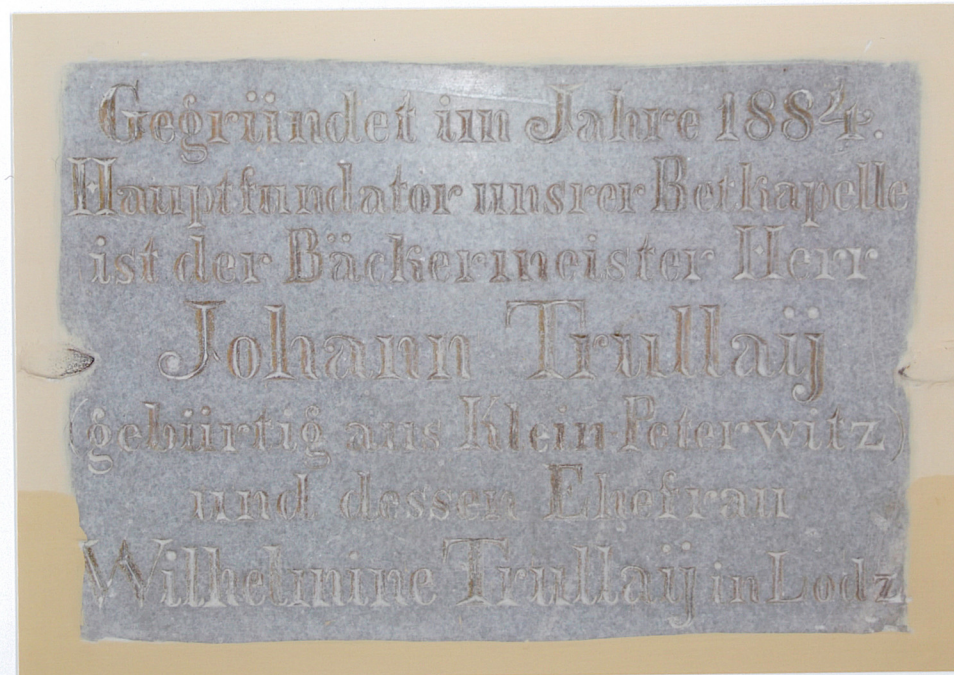 Gegründet im Jahre 1884.
Hauptfundator unsrer Betkapelle
ist der Bäckermeister Herr
Johann Trullaÿ
(gebürtig aus Klein-Peterwitz)
und dessen Ehefrau
Wilhelmine Trullaÿ in Lodz.